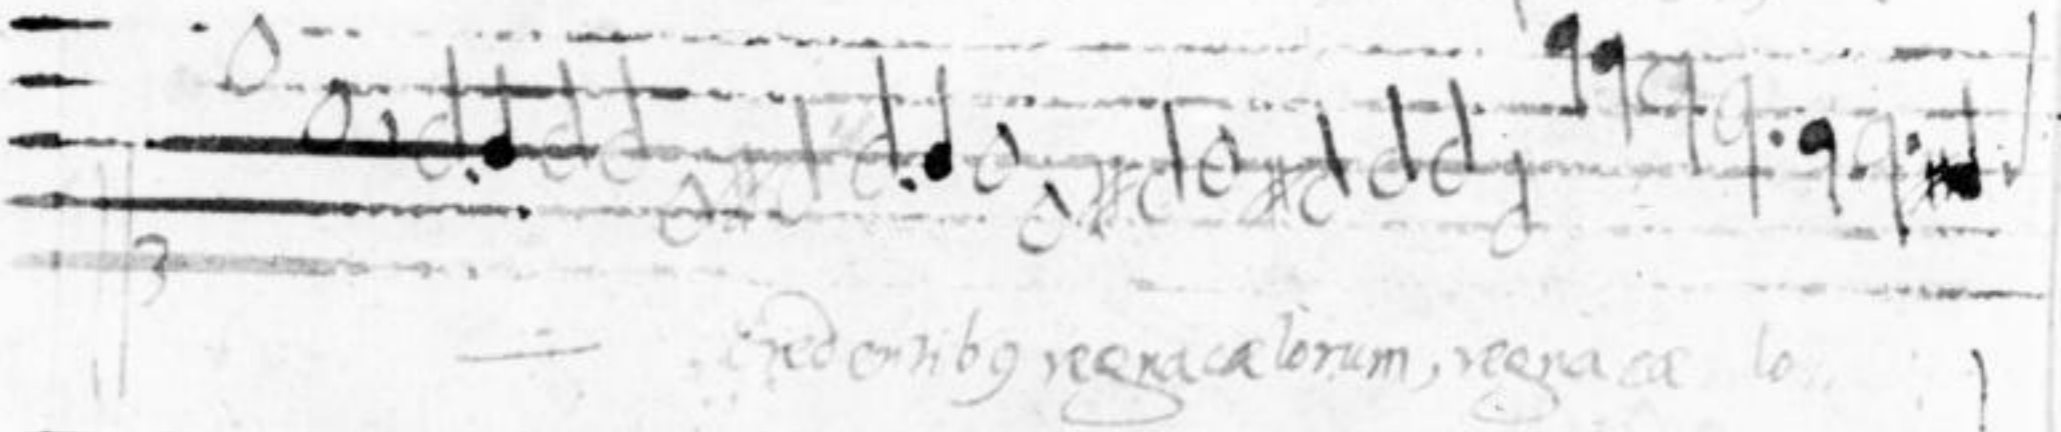 credentibꝯ regna cælorum, regna cæ lo